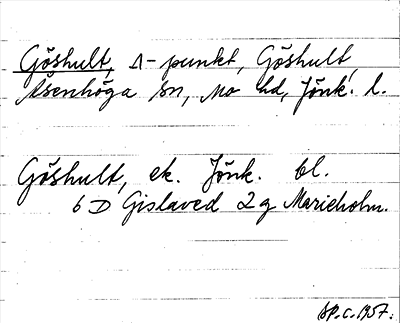 Göshult, Δ-punkt, Göshult,
Åsenhöga sn, Mo hd, Jönk. l.
Göshult, ek. Jönk. bl.
6 D Gislaved 2 g Marieholm.
SP.C. 1957.